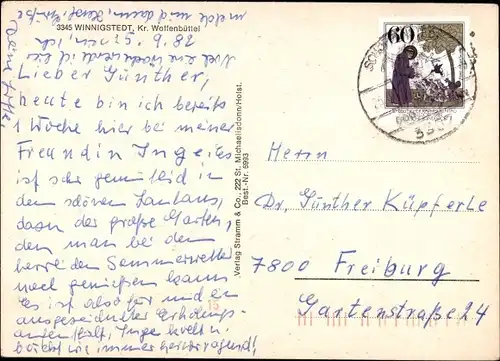 3345 WINNIGSTEDT, Kr. Wolfenbüttel
28.6.
Lieber Günther,
heute bin ich bereits
1 Woche hier bei meiner
Freundin Inge. Es
ist sehr gemütlich in
dem schönen Landhaus,
dazu der große Garten,
den man bei dem
herrl. Sommerwetter
noch genießen kann.
Es ist also für mich ein
ausgezeichneter Erholungs-
aufenthalt, Inge kocht u.
bäckt immer hervorragend!
Verlag Stramm & Co., 222 St. Michaelisdonn/Holst.
Best.-Nr. 6993
60
Herrn
Dr. Günther Küpferle
7800 Freiburg
Gartenstraße 24